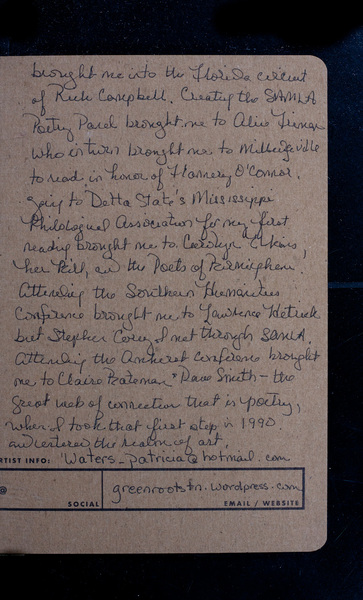 brought me into the Florida circuit
of Rick Campbell. Creating the SAMLA
Poetry Panel brought me to Alice Friman
who in turn brought me to Milledgeville
to read in honor of Flannery O'Connor.
going to Delta State's Mississippi
Philological Association for my first
reading brought me to Carolyn Elkins,
her Kirk, and the Poets of Birmingham.
Attending the Southern Humanities
Conference brought me to Lawrence Hetrick
but Stephen Corey I met through SAMLA.
Attending the Amherst Conference brought
me to Claire Bateman + Dave Smith - the
great web of connection that is poetry,
when I took that first step in 1990.
and entered the realm of art.
RTIST INFO: Waters_patricia@hotmail.com
@
SOCIAL
greenrootstn.wordpress.com
EMAIL / WEBSITE